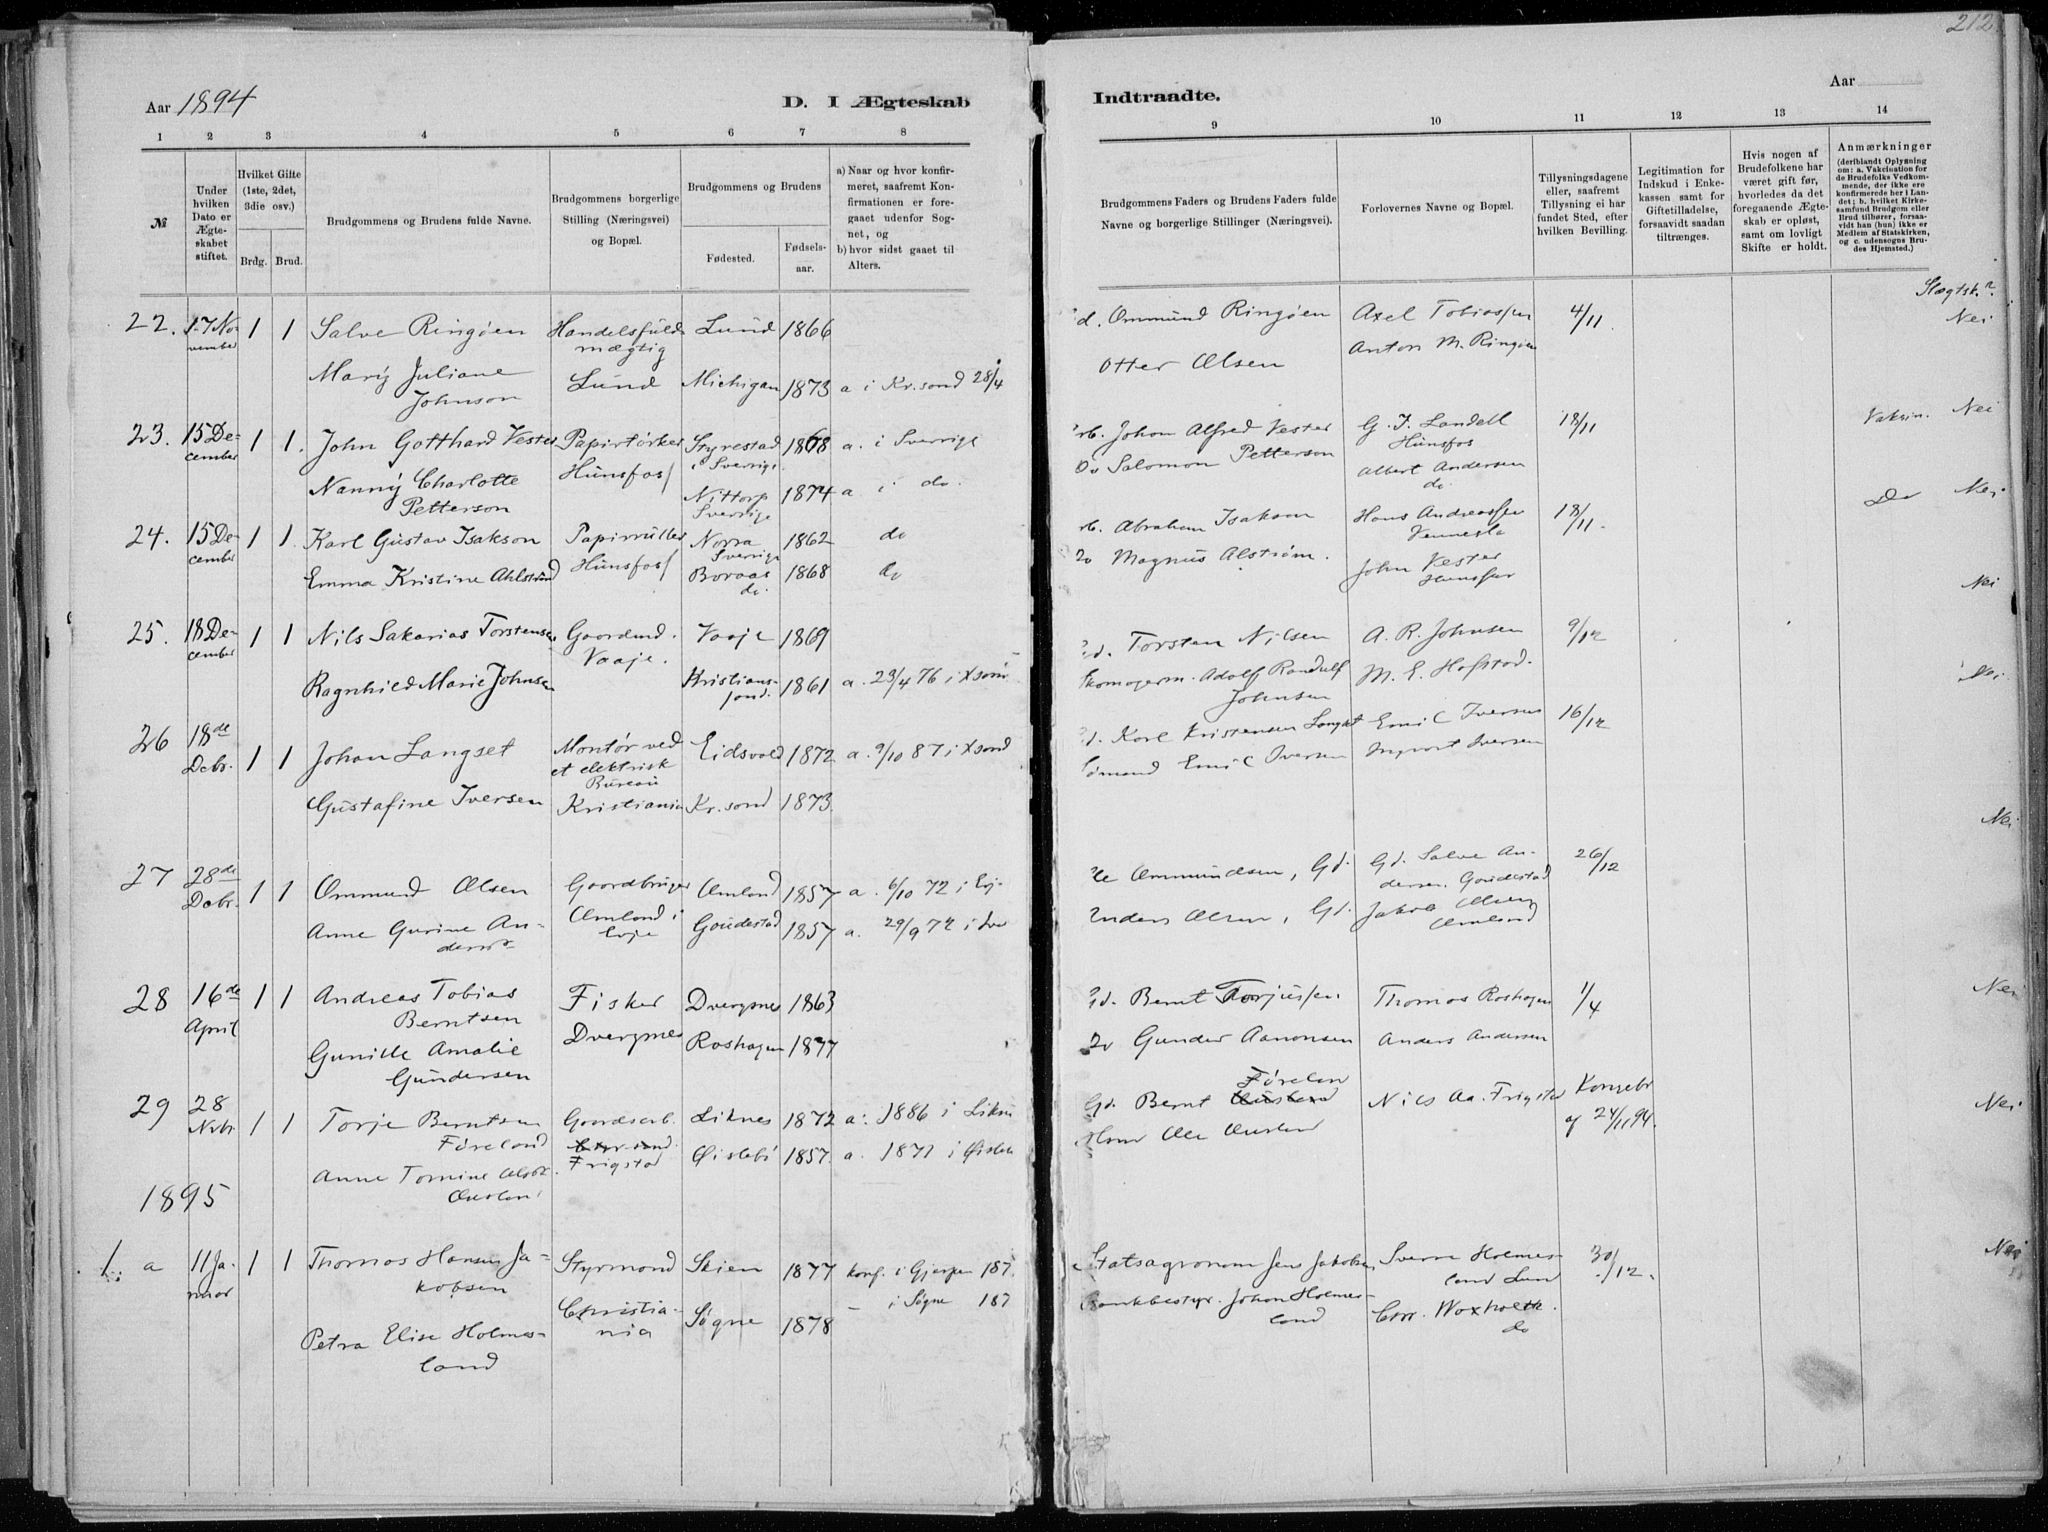 212
Aar 1894 D. I Ægteskab Indtraadte. Aar
1 2 3 4 5 6 7 8 9 10 11 12 13 14
№
Under hvilken Dato er Ægteskabet stiftet.
Hvilket Gifte (1ste, 2det, 3die osv.)
Brdg. Brud.
Brudgommens og Brudens fulde Navne.
Brudgommens borgerlige Stilling (Næringsvei) og Bopæl.
Brudgommens og Brudens
Fødested. Fødselsaar.
a) Naar og hvor konfirmeret, saafremt Konfirmationen er foregaaet udenfor Sognet, og
b) hvor sidst gaaet til Alters.
Brudgommens Faders og Brudens Faders fulde Navne og borgerlige Stillinger (Næringsvei).
Forlovernes Navne og Bopæl.
Tillysningsdagene eller, saafremt Tillysning ei har fundet Sted, efter hvilken Bevilling.
Legitimation for Indskud i Enkekassen samt for Giftetilladelse, forsaavidt saadan tiltrænges.
Hvis nogen af Brudefolkene har været gift før, hvorledes da det foregaaende Ægteskab er opløst, samt om lovligt Skifte er holdt.
Anmærkninger (deriblandt Oplysning om: a. Vakcination for de Brudefolks Vedkommende, der ikke ere konfirmerede her i Landet; b. hvilket Kirkesamfund Brudgom eller Brud tilhører, forsaavidt han (hun) ikke er Medlem af Statskirken, og c. udensogns Brudes Hjemsted.)
Slægtsk.?
22. 17 November 1 1 Salve Ringøen Handelsfuldmægtig Lund 1866 Ommund Ringøen Axel Tobiassen 4/11. Nei
Mary Juliane Johnson Lund Michigan 1873 a i Kr.sand 28/4 Otter Olsen Anton M. Ringøen
23. 15 December 1 1. John Gotthard Vester Papirtørker Styrestad i Sverrige 1868 a. i Sverrige Johan Alfred Vester G. I. Landell Hunsfos 18/11 Vaksin. Nei
Nanny Charlotte Petterson Hunsfos Nittorp Sverrige 1874 a i do. Salomon Petterson Albert Andersen do.
24. 15 December 1 1. Karl Gustav Isakson Hunsfos Norra Sverrige 1862 do Abraham Isakson Hans Andreassen Vennesla 18/11. Do Nei
Emma Kristine Boraas do. 1868 do Magnus Alstrøm. John Vester Hunsfos
25. 18 December 1 1 Nils Sakarias Torstensen Vaaje. Vaaje 1869 Torsten Nilsen A. R. Johnsen 9/12 Nei
Ragnhild Marie Johnsen Kristianssand. 1861 a. 23/4 76 i Adolf Randulf Johnsen M. E. Hofstad.
26 18de Debr. 1 1 Johan Langset Montør ved et elektrisk Bureau Eidsvold 1872 a. 9/10 87 i Karl Kristensen Langset Emil Iversen 16/12 Nei
Gustafine Iversen Kristiania Kr.sand 1873 Emil Iversen Ingvart Iversen
27 28de Debr. 1 1 Ommund Olsen Gaardbruger Omland 1857 a. 6/10 72 i Ommundsen, Gd. Gd. Salve Andersen. 26/12 Nei
Anne Gurine Omland i Evje 1857 a. 29/9 72 i Anders Olsen, Gd. Jakob Olsen Omland
28 16de April 1 1 Andreas Tobias Berntsen Fisker Dvergsnes 1863 Bernt Torjussen Thomas Roshagen 1/4 Nei
Gunille Amalie Gundersen Dvergsnes Roshagen 1877 Gunder Aanonsen Anders Andersen
29 28 Nvbr. 1 1 Torje Berntsen Føreland Frigstad Liknes 1872 a. 1886 i Gd. Bernt Føreland Nils Aa. Frigstad Kongebr. af 24/11 94. Nei
Anne Tomine Øislebø 1857. a. 1871 i Ole
1895
1. a 11 Januar 1 1 Thomas Hansen Jakobsen Styrmand Skien 1877 konf. i Gjerpen 187 Statsagronom Jens Jakobsen Sverre Holmesland Lund 30/12. Nei
Petra Elise Holmesland Christiania Søgne 1878 – i Søgne 187 Bankbestyr. Johan Holmesland Chr. Woxholth. do